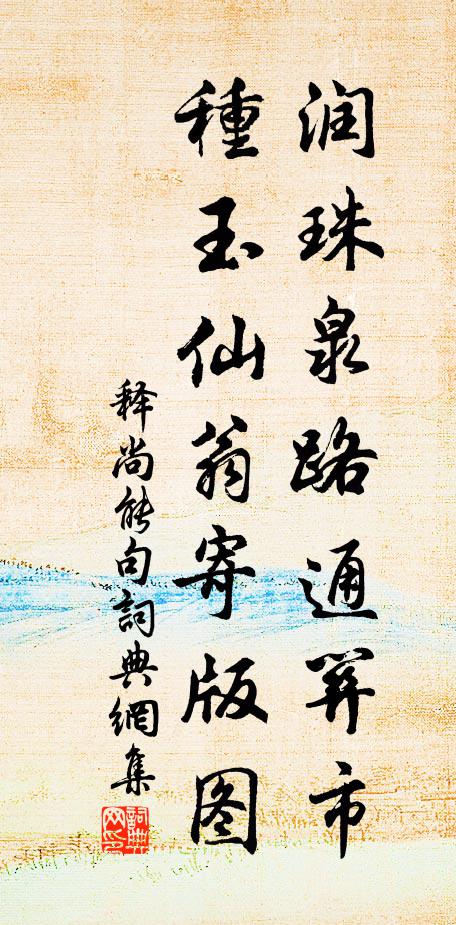 润珠泉路通關市
種玉仙翁寄版图
释尚能句詞典網集
詞典
网印